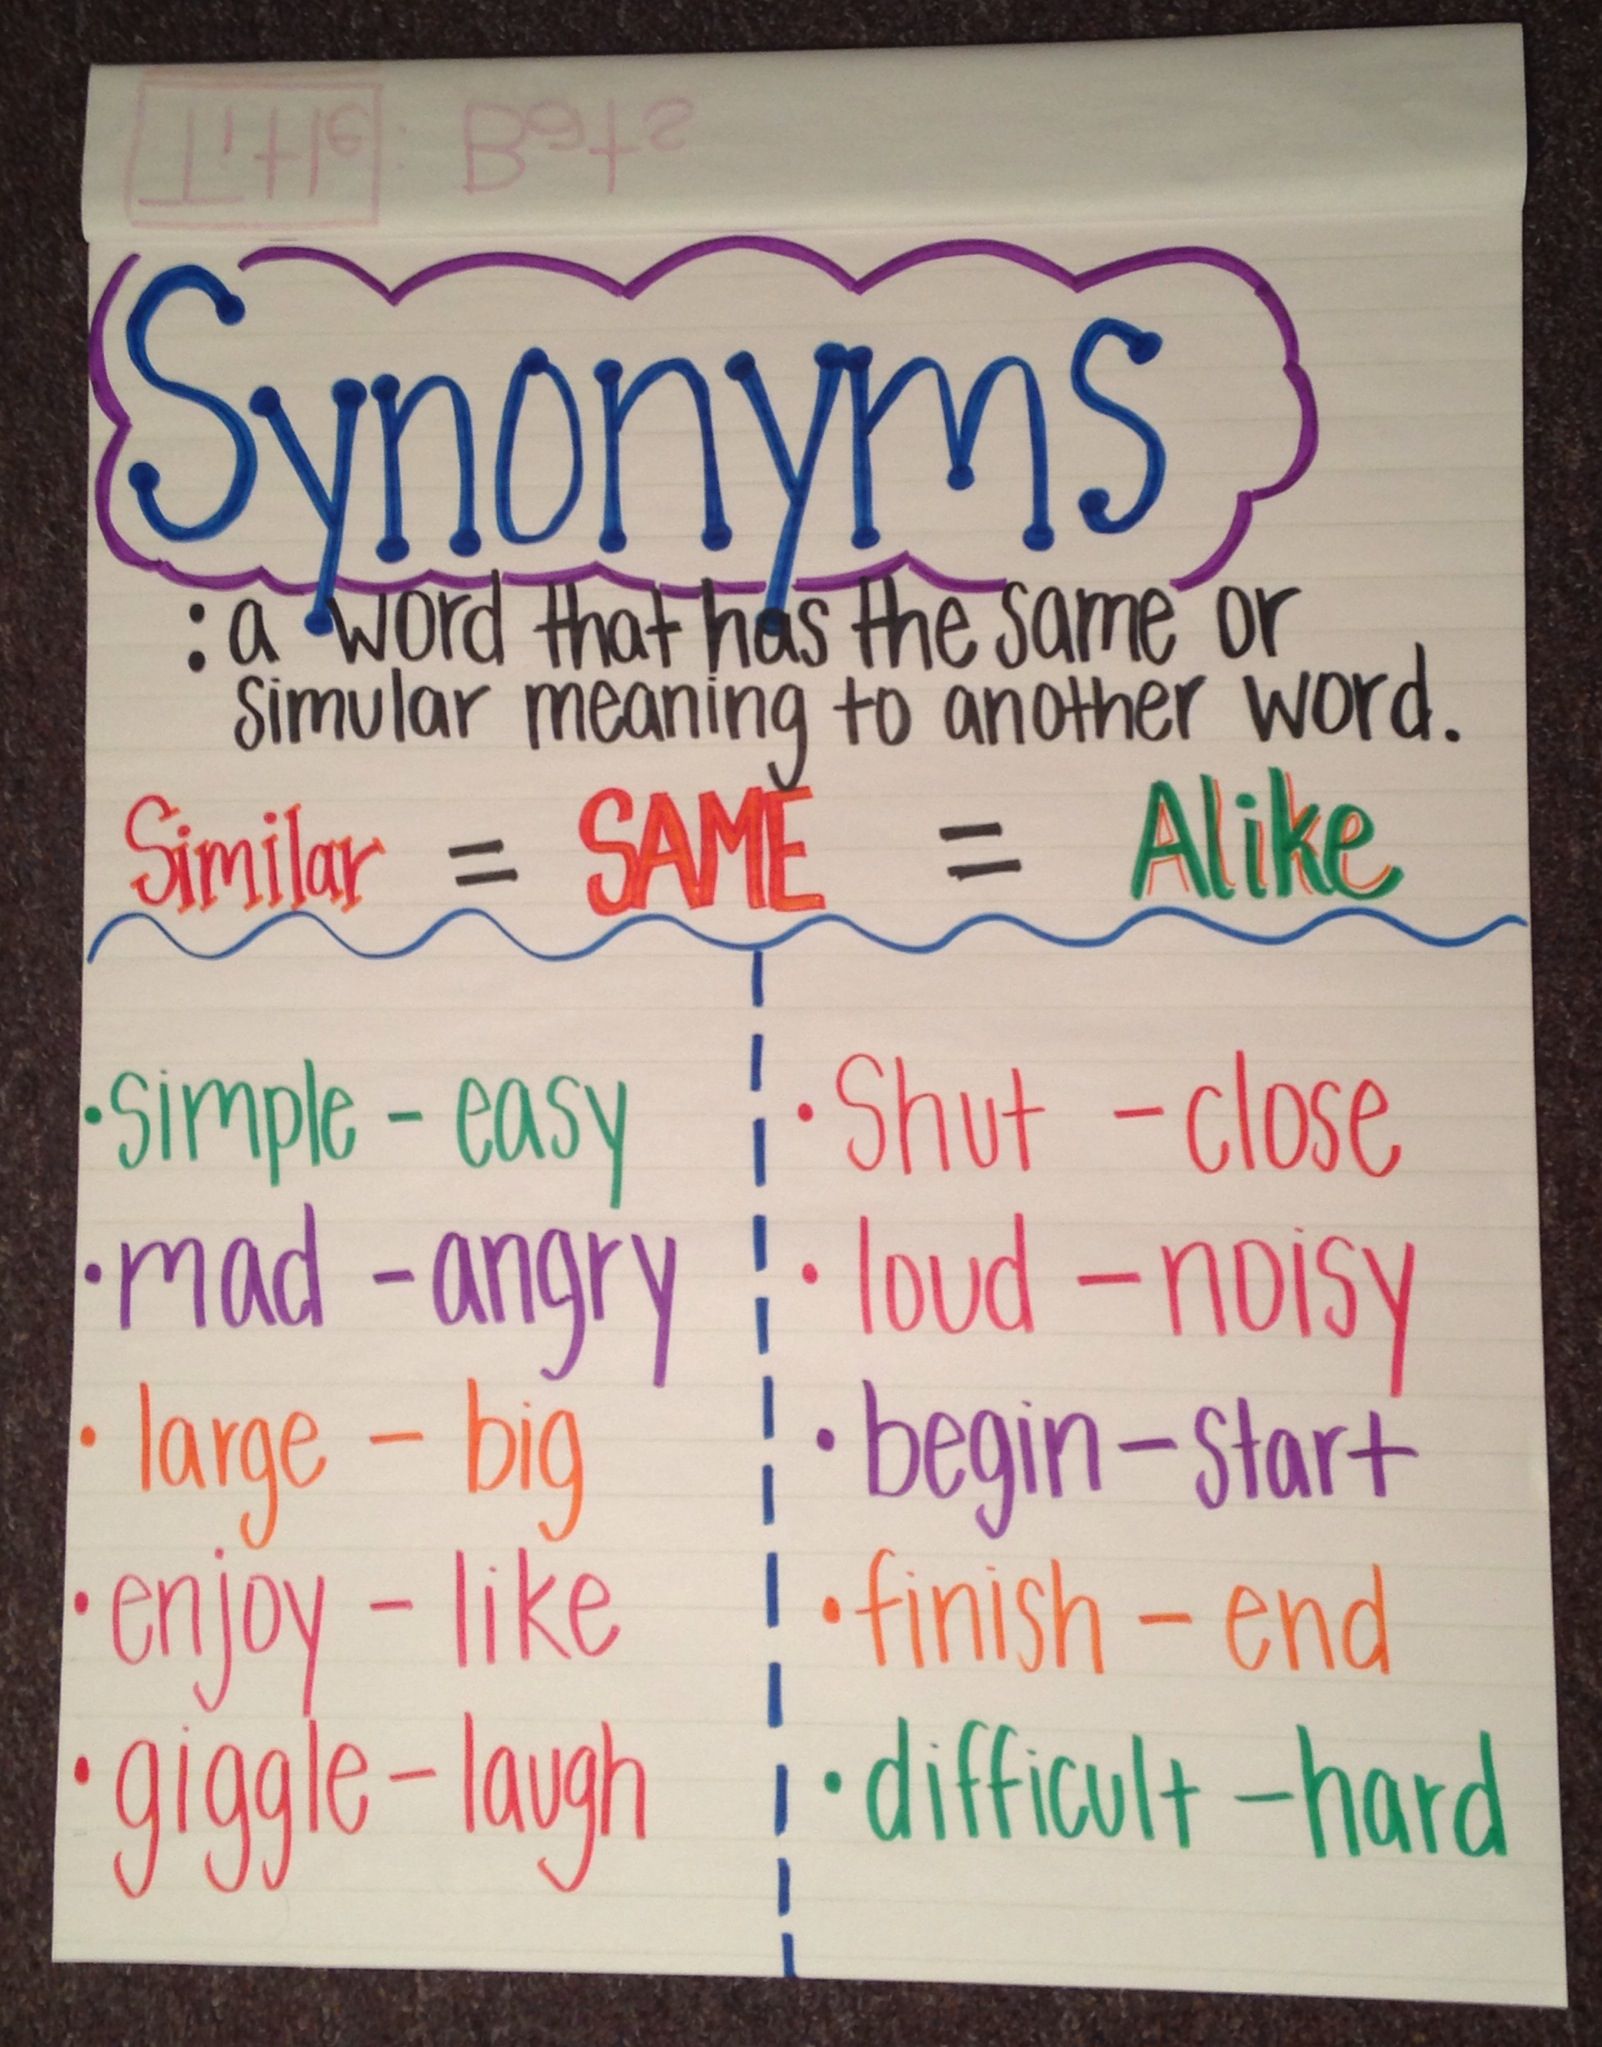 Title: Bats
Synonyms
: a word that has the same or
simular meaning to another word.
Similar = SAME = Alike
• simple - easy
• mad - angry
• large - big
• enjoy - like
• giggle - laugh
• Shut - close
• loud - noisy
• begin - start
• finish - end
• difficult - hard